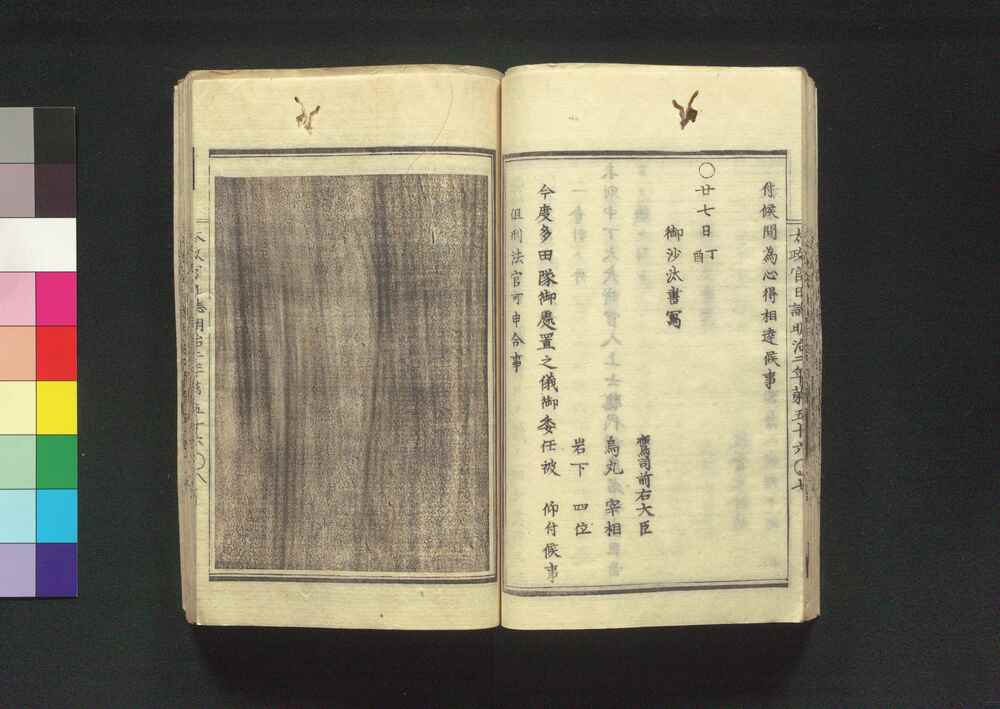 付候間為心得相達候事
○廿七日 丁酉
御沙汰書寫
鷹司前右大臣
烏丸宰相
岩下四位
今度多田隊御處置之儀御委任被 仰付候事
但刑法官可申合事
太政官日誌明治二年第五十六 ○七
太政官日誌明治二年第五十六 ○八